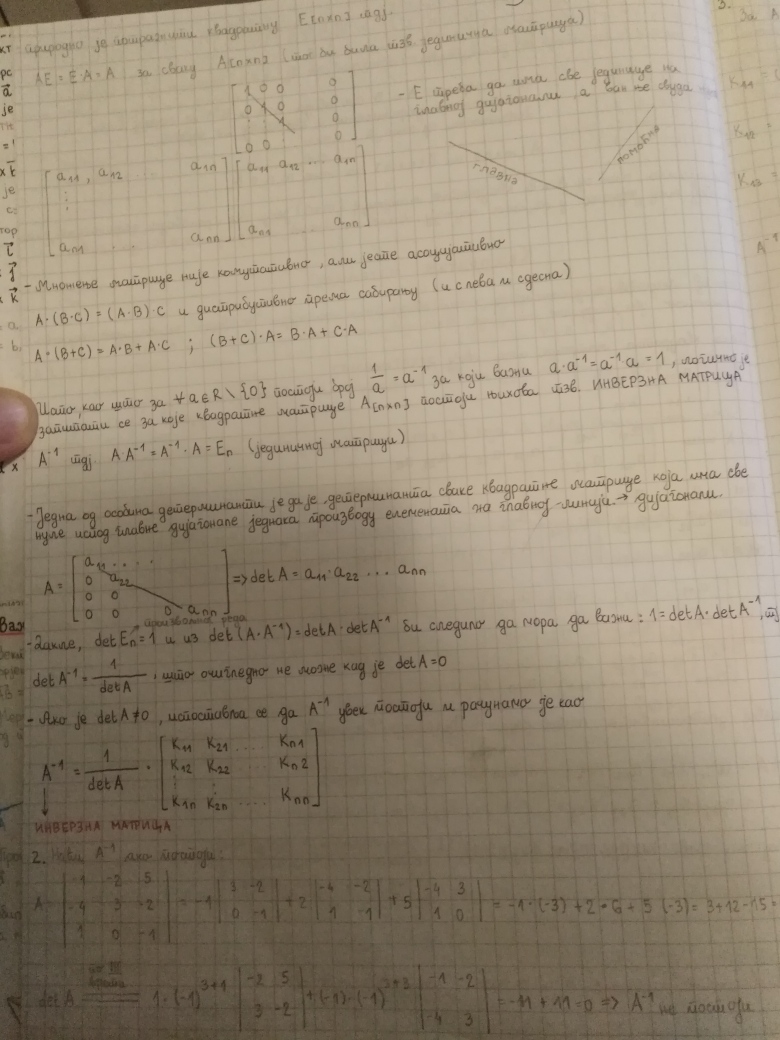 природно је потражити квадратну E[n×n] тдј.
AE = E·A = A за сваку A[n×n] (то би била тзв. јединична матрица)
[1 0 0 0
0 1 0 0
0
0 0 0]
- E треба да има све јединице на
главној дијагонали а ван ње свуда
главна
помоћна
[a11, a12 a1n] [a11 a12 ... a1n]
[an1 ... ann] [an1 ann]
- Множење матрице није комутативно, али јесте асоцијативно
A·(B·C) = (A·B)·C и дистрибутивно према сабирању (и с лева и сдесна)
A·(B+C) = A·B + A·C ; (B+C)·A = B·A + C·A
Зато, као што за ∀a∈R\{0} постоји број 1/a = a⁻¹ за који важи a·a⁻¹ = a⁻¹a = 1, логично је
запитати се за које квадратне матрице A[n×n] постоји њихова тзв. ИНВЕРЗНА МАТРИЦА
A⁻¹ тдј. A·A⁻¹ = A⁻¹·A = En (јединичној матрици)
- Једна од особина детерминанти је да је детерминанта сваке квадратне матрице која има све
нуле испод главне дијагонале једнака производу елемената на главној линији → дијагонали.
A = [a11 ....
0 a22
0 0
0 0 0 ann] => det A = a11·a22 ... ann
произвољног реда
- Дакле, det En = 1 и из det(A·A⁻¹) = det A·det A⁻¹ би следило да мора да важи: 1 = det A·det A⁻¹, тј
det A⁻¹ = 1/det A, што очигледно не може кад је det A = 0
- Ако је det A ≠ 0, испоставља се да A⁻¹ увек постоји и рачунамо је као
A⁻¹ = 1/det A · [K11 K21 .... Kn1
K12 K22 .... Kn2
K1n K2n .... Knn]
ИНВЕРЗНА МАТРИЦА
2. Наћи A⁻¹ ако постоји:
A = |-1 -2 5
-4 3 -2
1 0 -1| = -1 |3 -2
0 -1| + 2 |-4 -2
1 -1| + 5 |-4 3
1 0| = -1·(-3) + 2·6 + 5·(-3) = 3+12-15 =
det A = по III врсти 1·(-1)³⁺¹ |-2 5
3 -2| + (-1)·(-1)³⁺³ |-1 -2
-4 3| = -11 + 11 = 0 => A⁻¹ не постоји